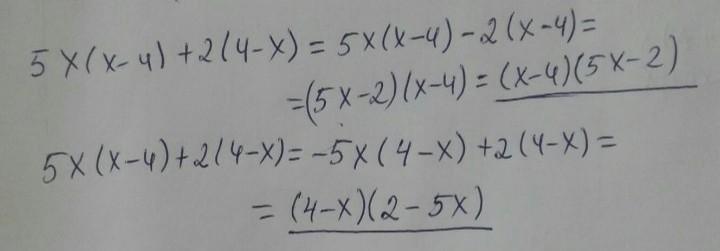 5x(x-4)+2(4-x)=5x(x-4)-2(x-4)=
=(5x-2)(x-4)=(x-4)(5x-2)
5x(x-4)+2(4-x)=-5x(4-x)+2(4-x)=
=(4-x)(2-5x)